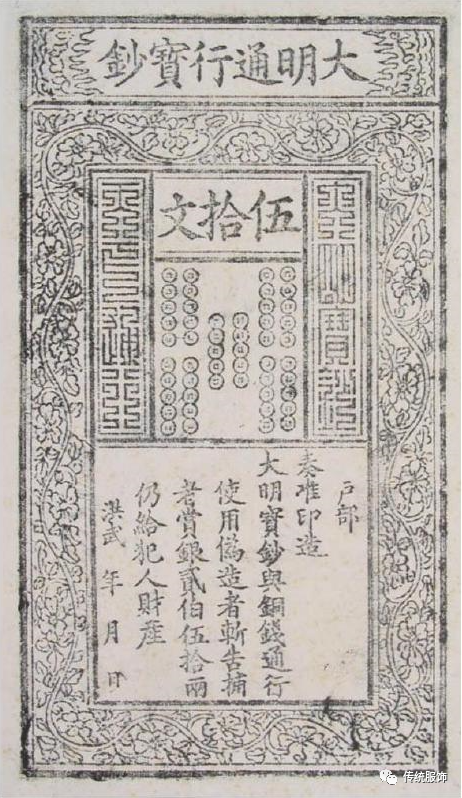 大明通行寶鈔
伍拾文
戶部
奏准印造
大明寶鈔與銅錢通行
使用僞造者斬告捕
者賞銀貳伯伍拾兩
仍給犯人財產
洪武 年 月 日
传统服饰